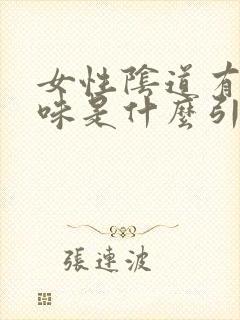 女性陰道有
味是什麼引
張連波